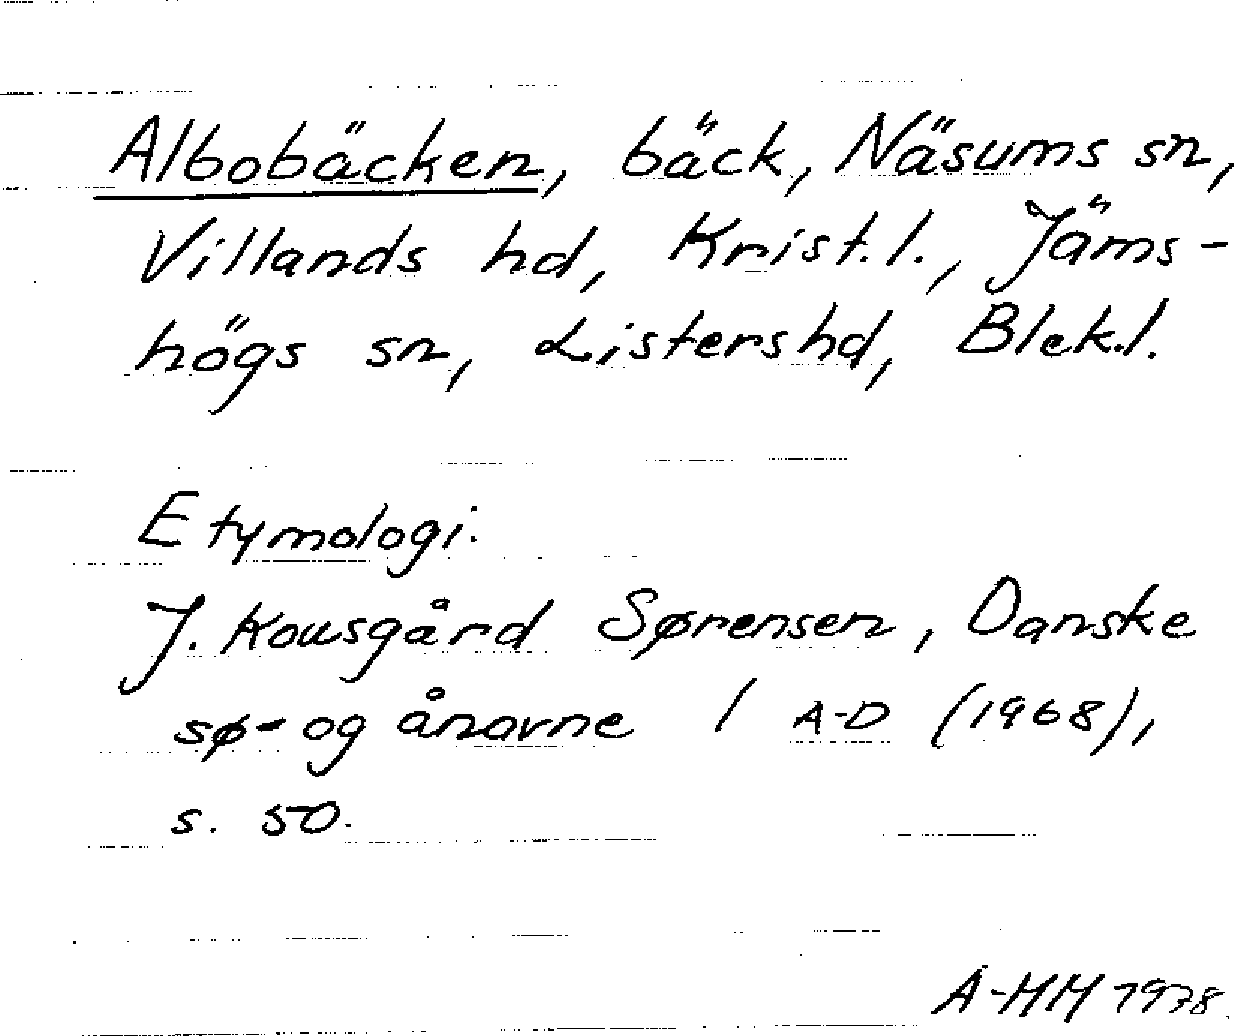 Albobäcken, bäck, Näsums sn,
Villands hd, Krist.l., Jäms-
högs sn, Listers hd, Blek.l.
Etymologi.
J. Kousgård Sørensen, Danske
sø- og ånavne 1 A-D (1968),
s. 50.
A-MM 1978